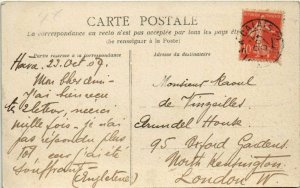 CARTE POSTALE
La correspondance en recto n'est pas acceptée par tous les pays étrangers
(Se renseigner à la Poste)
Partie réservée à la correspondance
Adresse du destinataire
23 Oct 09
Mon cher ami
J'ai bien reçu
ta lettre, merci
mille fois. Je n'ai
pas répondu plus
tôt car j'ai été
souffrant
Monsieur Raoul
de
Arundel House
95 Oxford Gardens
North Kensington
London W
(Angleterre)
10